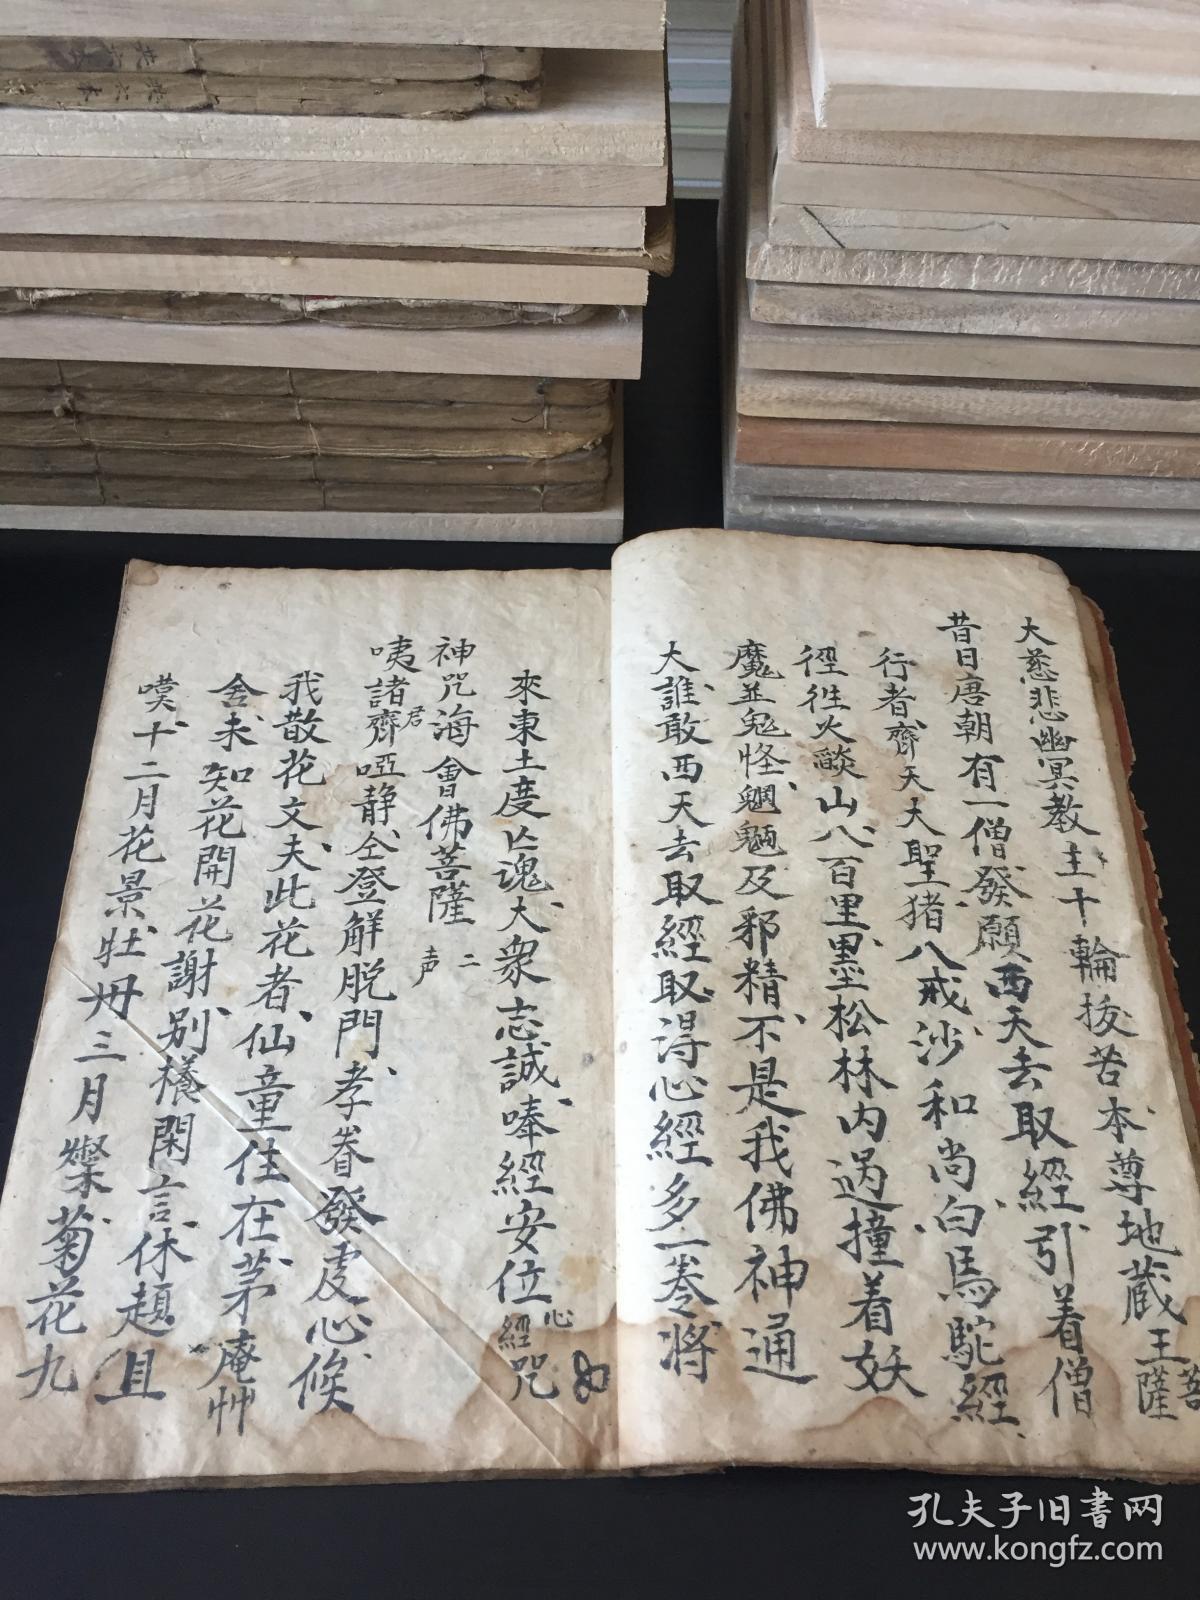 大慈悲幽冥教主十輪拔苦本尊地蔵王菩薩
昔日唐朝有一僧發願西天去取經引着僧
行者齊天大聖猪八戒沙和尚白馬駝經
徑往火燄山八百里墨松林内過撞着妖
魔並鬼怪魍魎及邪精不是我佛神通
大誰敢西天去取經取得心經多一卷將
來東土度亡魂大衆志誠唪經安位心經咒
神咒海會佛菩薩二声
咦諸君齊啞静仝登解脱門孝眷發虔心俟
我散花文夫此花者仙童住在茅庵艸
舍未知花開花謝别樣閑言休題且
嘆十二月花景牡丹三月
菊花九
共六本
共六本
孔夫子旧書网
www.kongfz.com